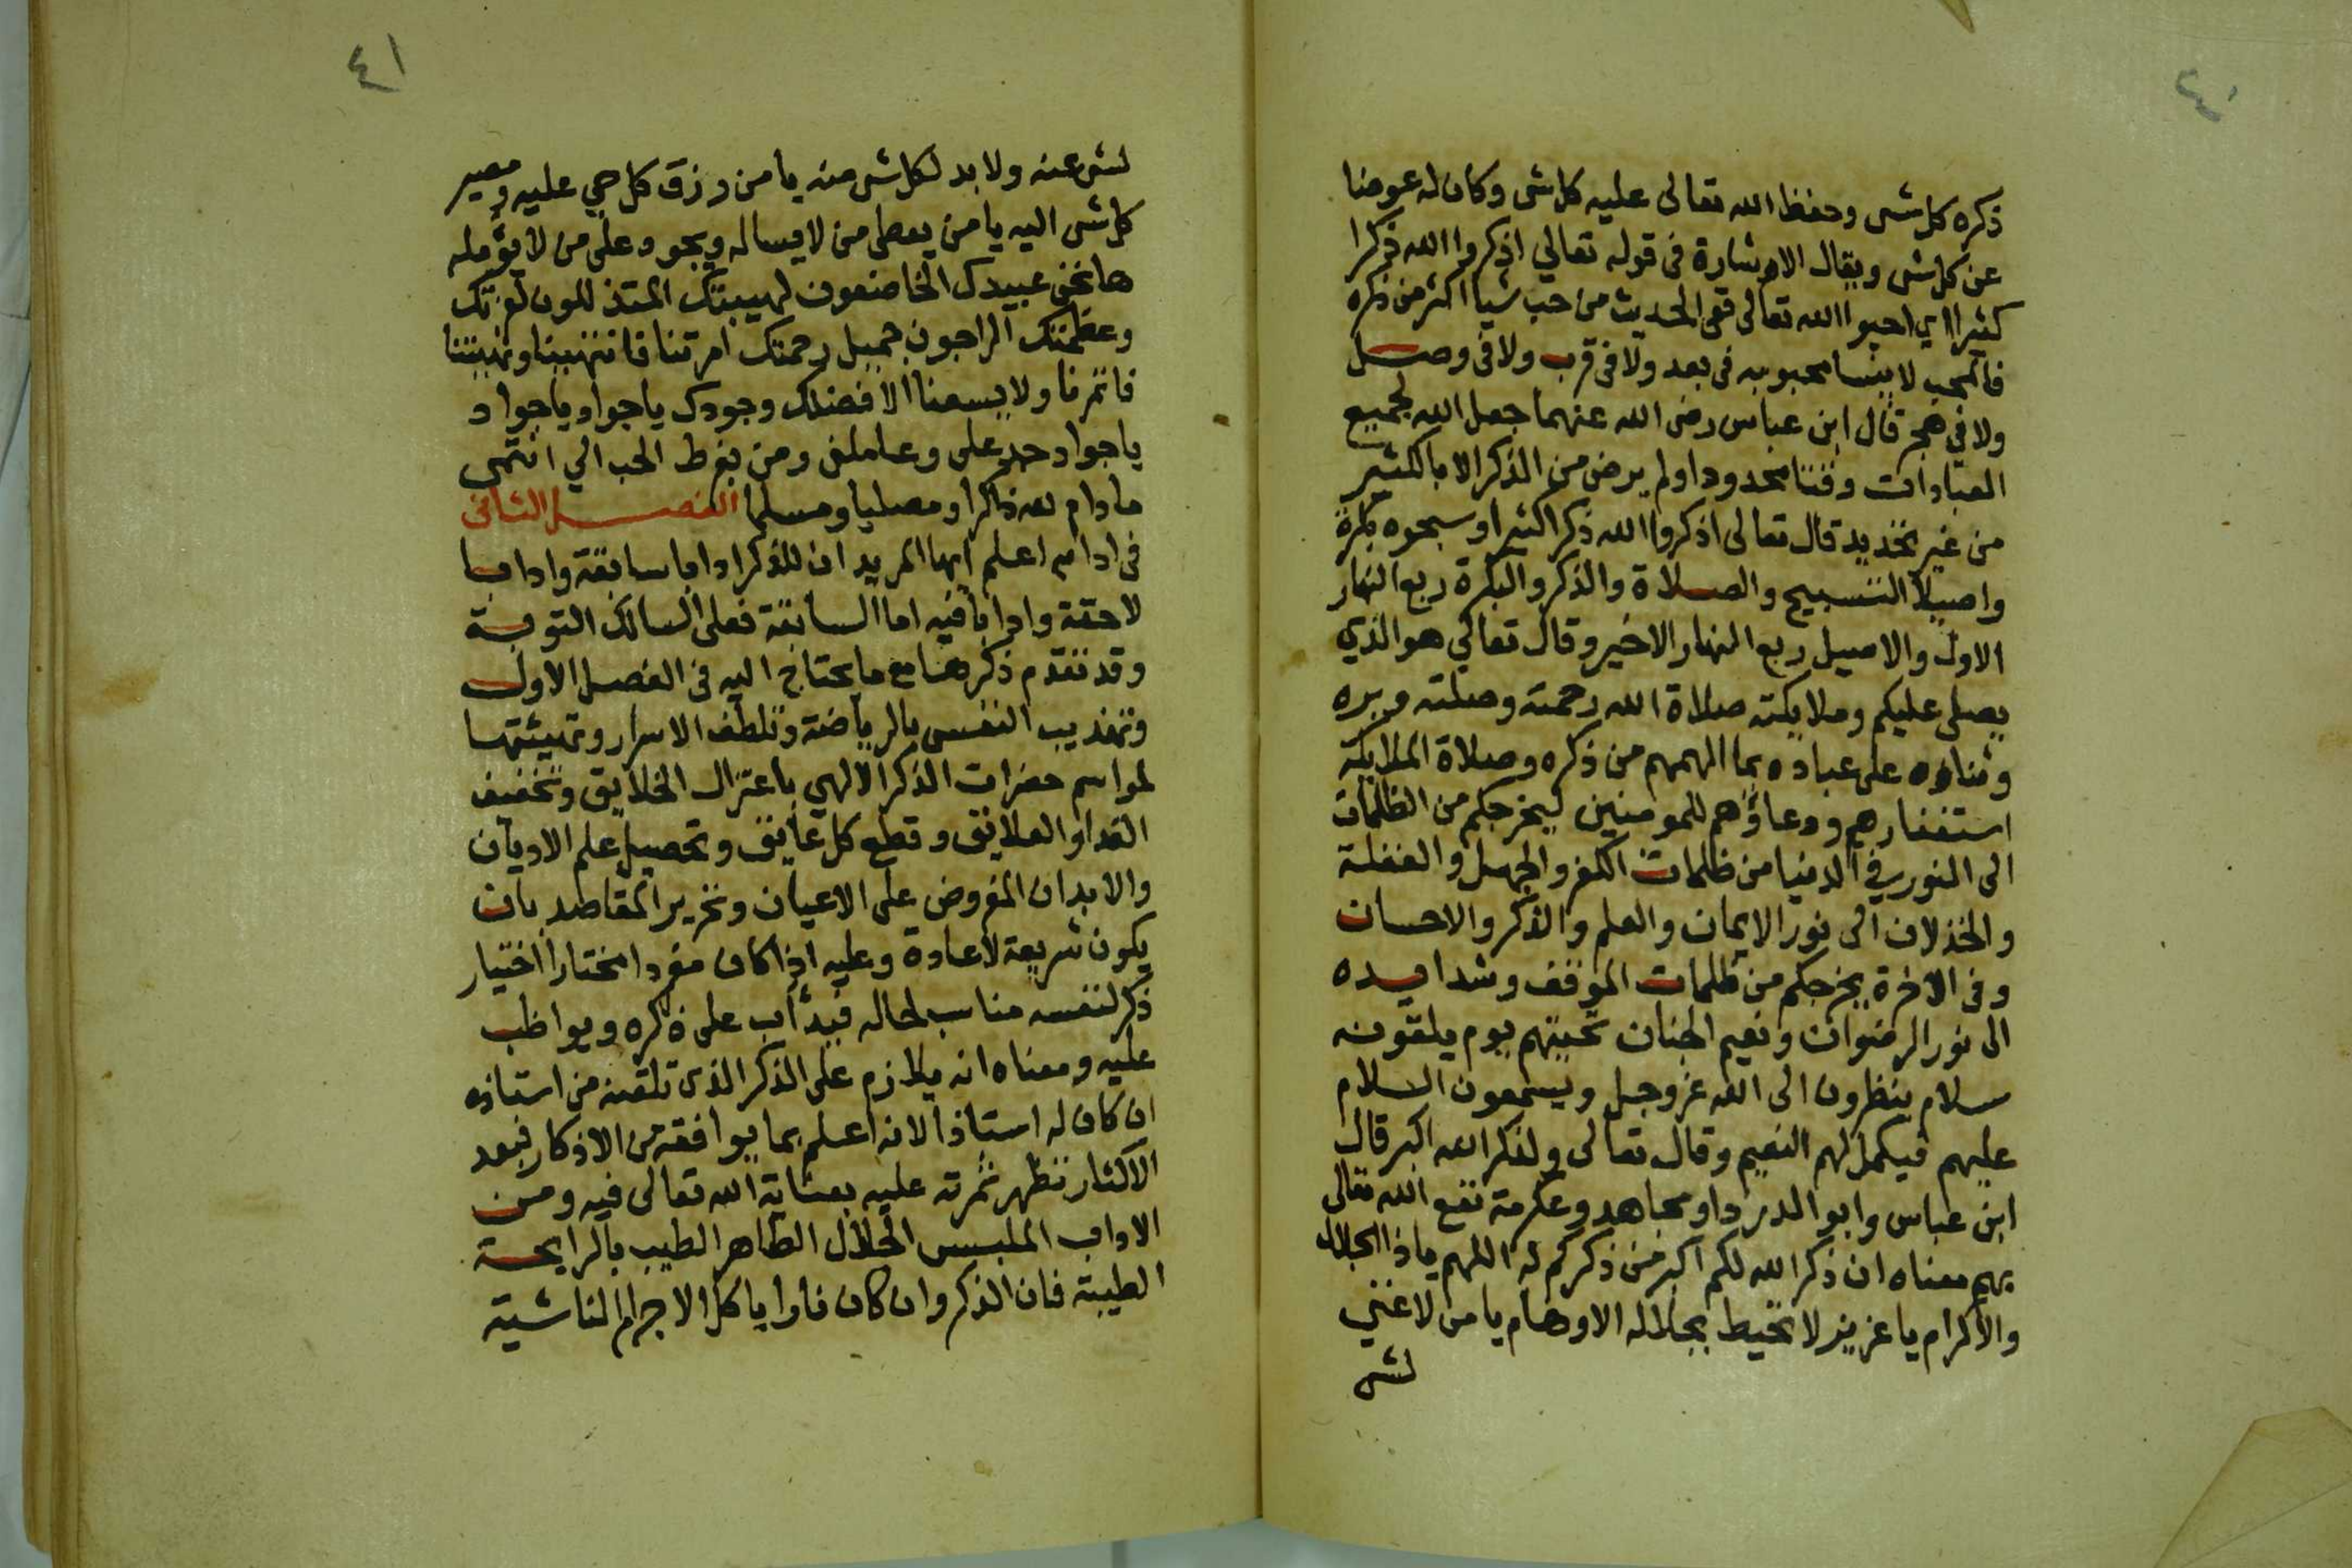 ٤٠
ذكره كل شى وحفظ الله تعالى عليه كل شى وكان له عوضا
عن كل شى ويقال الاشارة فى قوله تعالي اذكروا الله ذكرا
كثيرا اي احبوا الله تعالى ففى الحديث من حب شيا اكثر من ذكره
فالمحب لا ينسا محبوبه فى بعد ولا فى قرب ولا فى وصل
ولا في هجر قال ابن عباس رضى الله عنهما جعل الله لجميع
العبادات وقتا محدودا ولم يرض من الذكر الا بالكثير
من غير تحديد قال تعالى اذكروا الله ذكرا كثيرا وسبحوه بكرة
واصيلا التسبيح والصلاة والذكر والبكرة ربع النهار
الاول والاصيل ربع النهار الاخير وقال تعالي هو الذي
يصلى عليكم وملايكته صلاة الله رحمته وصلته وبره
وثناؤه على عباده بما الهمهم من ذكره وصلاة الملايكة
استغفارهم ودعاؤهم للمومنين ليخرجكم من الظلمات
الى النور في الدنيا من ظلمات الكفر والجهل والغفلة
والخذلان الى نور الايمان والعلم والذكر والاحسان
وفى الاخرة يخرجكم من ظلمات الموقف وشدايده
الى نور الرضوان ونعيم الجنان تحيتهم يوم يلقونه
سلام ينظرون الى الله عز وجل ويسمعون السلام
عليهم فيكمل لهم النعيم وقال تعالى ولذكر الله اكبر قال
ابن عباس وابو الدردا ومجاهد وعكرمة نفع الله تعالى
بهم معناه ان ذكر الله لكم اكبر من ذكركم له اللهم ياذا الجلال
والاكرام يا عزيز لا تحيط بجلاله الاوهام يا من لا غني
لشى
٤١
لشى عنه ولا بد لكل شى منه يا من رزق كل حي عليه ومصير
كل شى اليه يا من يعطى من لا يساله ويجود على من لا يؤمله
ها نحن عبيدك الخاضعون لهيبتك المتذللون لعزتك
وعظمتك الراجون جميل رحمتك امرتنا فانتهينا ونهيتنا
فاتمرنا ولا يسعنا الا فضلك وجودك يا جواد يا جواد
يا جواد جد على وعاملنى ومن بفرط الحب الي انتمى
ما دام لله ذاكرا ومصليا ومسلما الفصل الثانى
فى ادابه اعلم ايها المريد ان للذكر ادابا سابقة وادابا
لاحقة وادابا فيه اما السابقة فعلى السالك التوبة
وقد تقدم ذكرها مع ما يحتاج اليه فى الفصل الاول
وتهذيب النفس بالرياضة وتلطف الاسرار وتهيئتها
لمواسم حضرات الذكر الالهي باعتزال الخلايق وتخفيف
الغدا والعلايق وقطع كل عايق وتحصيل علم الاديان
والابدان المفروض على الاعيان وتحرير المقاصد بان
يكون شريعة لا عادة وعليه اذا كان مفردا مختارا اختيار
ذكر لنفسه مناسب لحاله فيدأب على ذكره ويواظب
عليه ومعناه انه يلازم على الذكر الذى تلقنه من استاذه
ان كان له استاذا لانه اعلم بما يوافقه من الاذكار فبعد
الاكثار تظهر ثمرته عليه بعناية الله تعالى فيه ومن
الاداب الملبس الحلال الطاهر الطيب بالرايحة
الطيبة فان الذكر وان كان نارا ياكل الاجرام الناشية